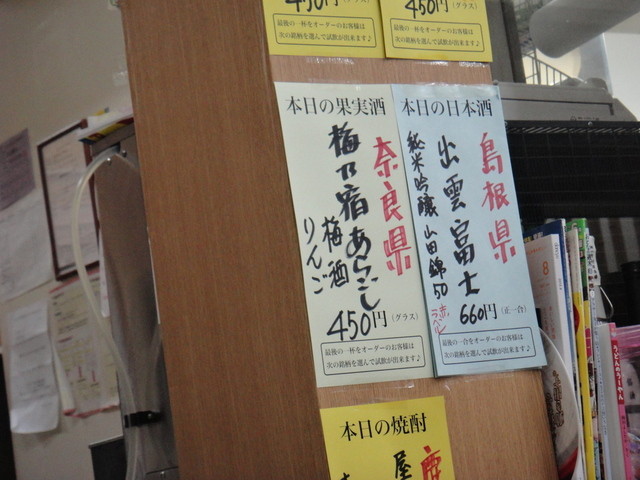 450円(グラス)
最後の一杯をオーダーのお客様は
次の銘柄を選んで試飲が出来ます♪
450円(グラス)
最後の一杯をオーダーのお客様は
次の銘柄を選んで試飲が出来ます♪
本日の果実酒
奈良県
梅乃宿あらごし
梅酒
りんご
450円(グラス)
最後の一杯をオーダーのお客様は
次の銘柄を選んで試飲が出来ます♪
本日の日本酒
島根県
出雲富士
純米吟醸 山田錦50
赤ラベル
660円(正一合)
最後の一合をオーダーのお客様は
次の銘柄を選んで試飲が出来ます♪
本日の焼酎
鹿
屋
8